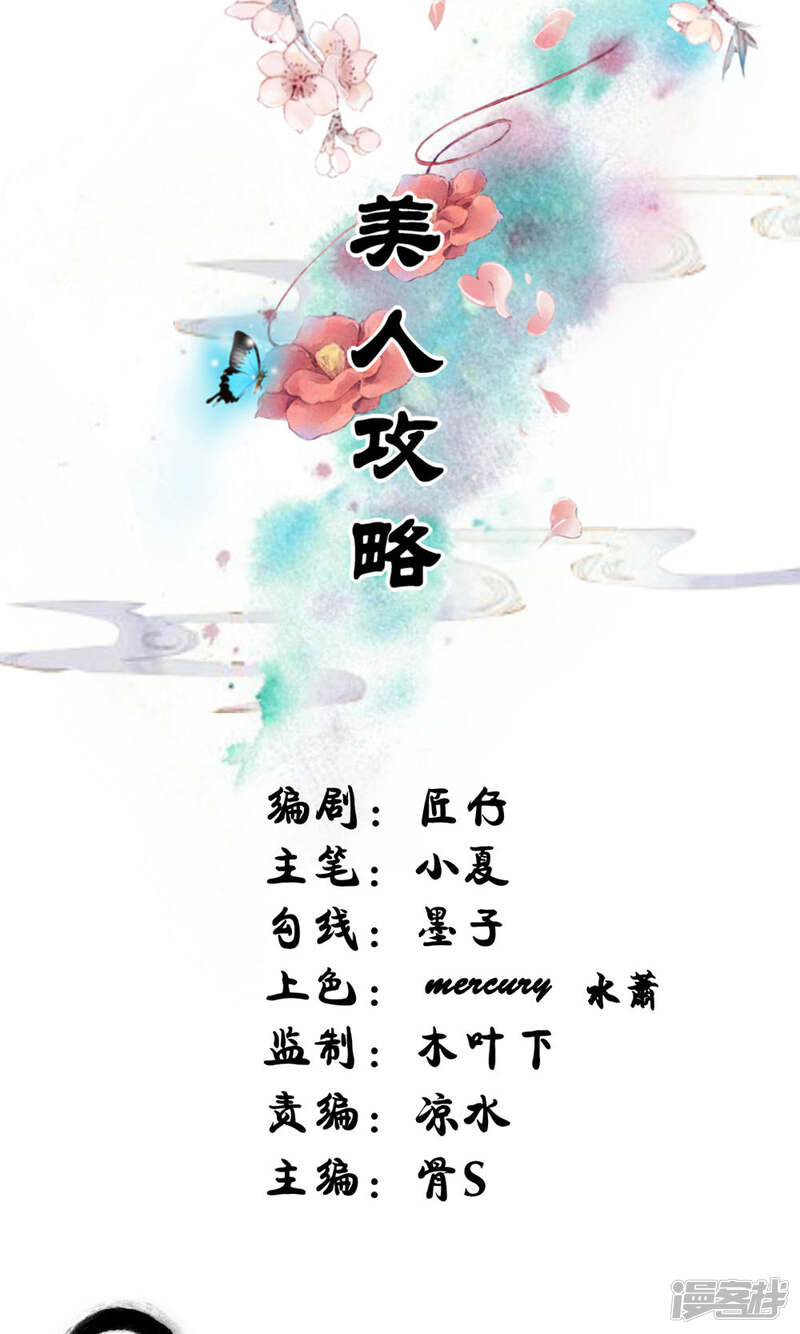 美人攻略
编剧：匠仔
主笔：小夏
勾线：墨子
上色：mercury 水蕭
监制：木叶下
责编：凉水
主编：骨S
漫客栈